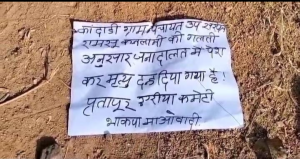 कांदाडी ग्राम पंचायत उप सरपंच
रामसू कचलामी को गलती
अनुसार जनअदालत में पेश
कर मृत्यु दण्ड दिया गया है!
प्रतापुर एरीया कमेटी
भाकपा माओवादी